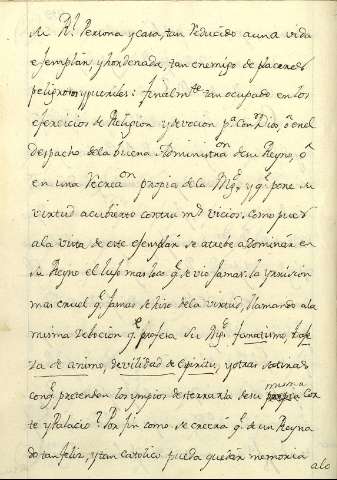 su Rl. Persona y casa, tan reducido a una vida
exemplar, y hordenada, tan enemigo de placeres
peligrosos y pueriles: finalmte. tan ocupado en los
exercicios de Religion y devocion pa. con Dios, o en el
despacho de la buena Administraon. de su Reyno, o
en una Recreaon. propia de la Mgd. y qe. pone su
virtud a cubierto contra mil vicios. Como pues
a la vista de este exemplar se atrebe a Dominar en
su Reyno el lujo mas loco qe. se vio jamas: la irrision
mas cruel qe. jamas se hizo de la virtud, llamando a la
misma debocion qe. profesa Su Mgd. fanatismo, baje
za de animo, devilidad de Espiritu, y otras
conqe. pretenden los ympios desterrarla de su
misma
Cor
te y Palacio? Por fin como se creerá qe. de un Reyna
do tan feliz, y tan catolico pueda quedar memoria
a lo